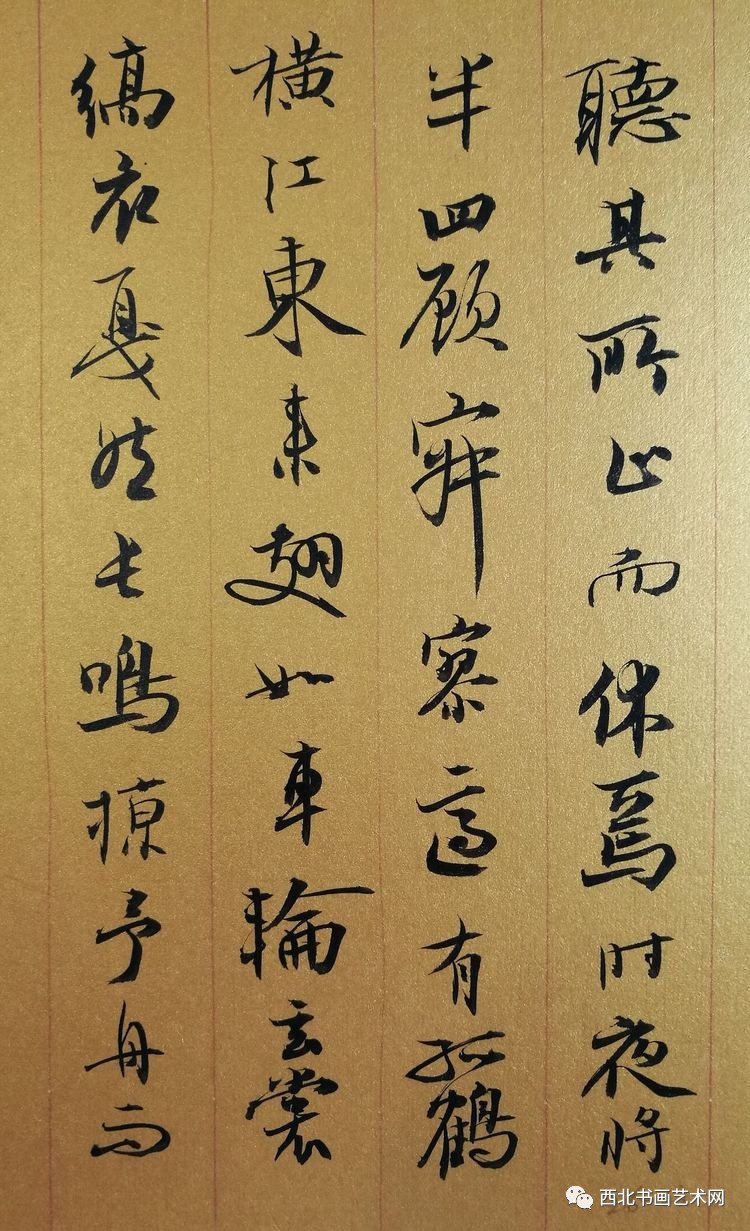 聽其所止而休焉时夜將
半四顾寂寥適有孤鶴
橫江東来翅如車輪玄裳
縞衣戛然長鳴掠予舟而
西北书画艺术网